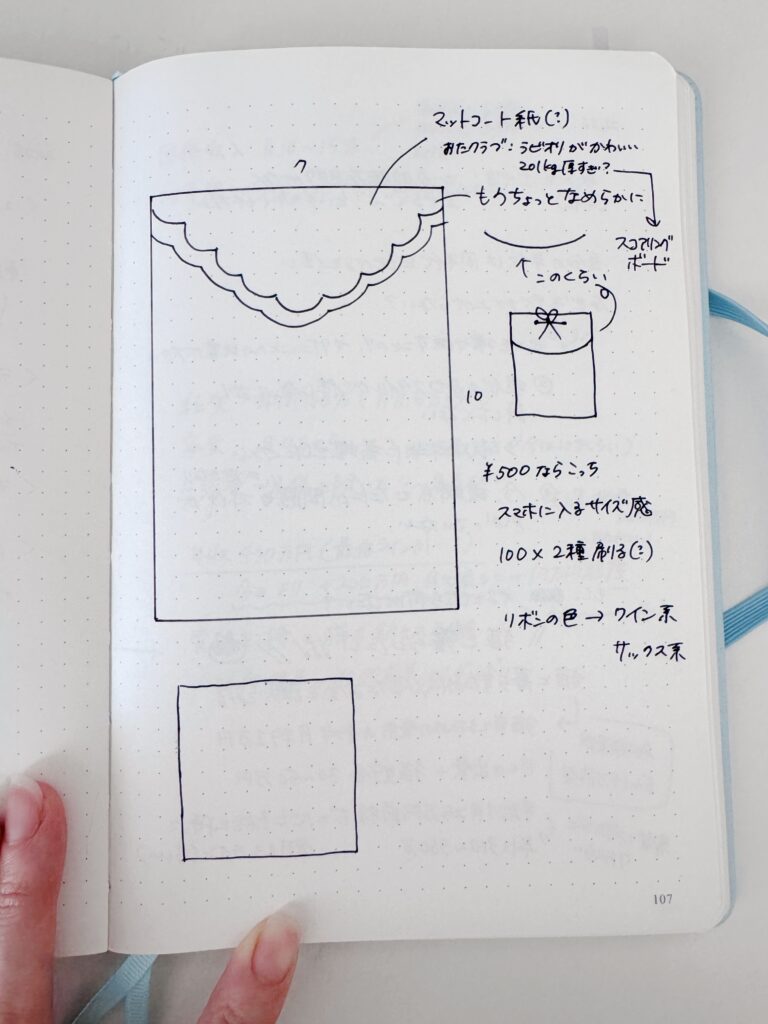 マットコート紙(?)
おたクラブ:ラビオリがかわいい
201kg厚すぎ?
7
もうちょっとなめらかに
スコアリング
ボード
↑このくらい
10
¥500ならこっち
スマホに入るサイズ感
100×2種刷る(?)
リボンの色→ワイン系
サックス系
107